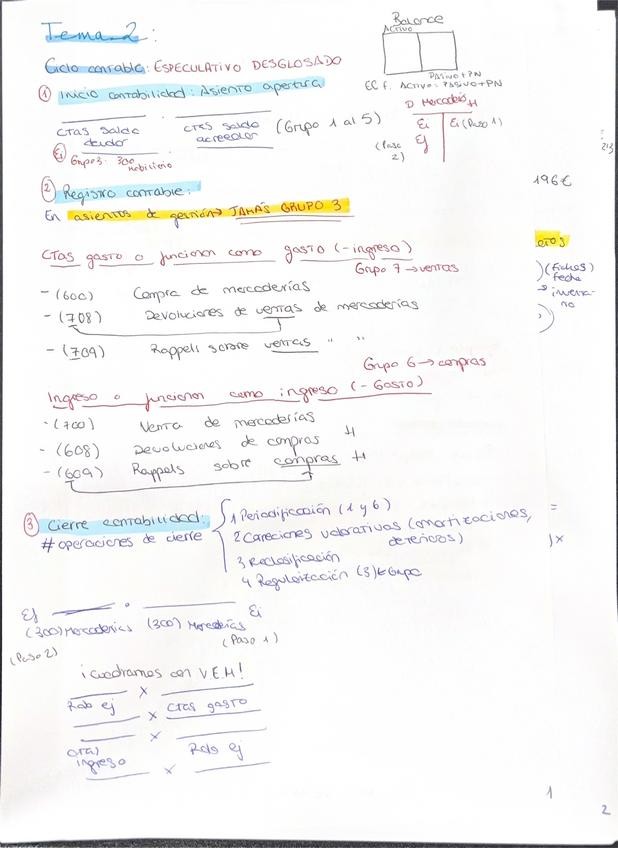 Tema 2:
Balance
ACTIVO
PASIVO + PN
Ciclo contable: ESPECULATIVO DESGLOSADO
EC F. ACTIVO = PASIVO + PN
① Inicio contabilidad: Asiento apertura
D Mercaderías H
Ei Ei (Paso 1)
Ctas saldo deudor
Ctas saldo acreedor
(Grupo 1 al 5)
(Paso 2)
Ef
Ei Grupo 3: 300
213
② Registro contable:
196€
En asientos de gestión → JAMÁS GRUPO 3
Ctas gasto o funcionan como gasto (- ingreso)
(fichas)
Grupo 7 → ventas
- (600) Compra de mercaderías
- (708) Devoluciones de ventas de mercaderías
- (709) Rappels sobre ventas " "
Grupo 6 → compras
Ingreso o funcionan como ingreso (- Gasto)
- (700) Venta de mercaderías
- (608) Devoluciones de compras H
- (609) Rappels sobre compras H
③ Cierre contabilidad:
# operaciones de cierre
1 Periodificación (1 y 6)
=
2 Correciones valorativas (amortizaciones, deterioros)
)x
3 Reclasificación
4 Regularización (3) ← Grupo
Ef
Ei
(300) Mercaderías (300) Mercaderías
(Paso 2)
(Paso 1)
¡cuadramos con V.E.M!
x
Rdo ej
x
Ctas gasto
x
Ctas ingreso
Rdo ej
x
1
2